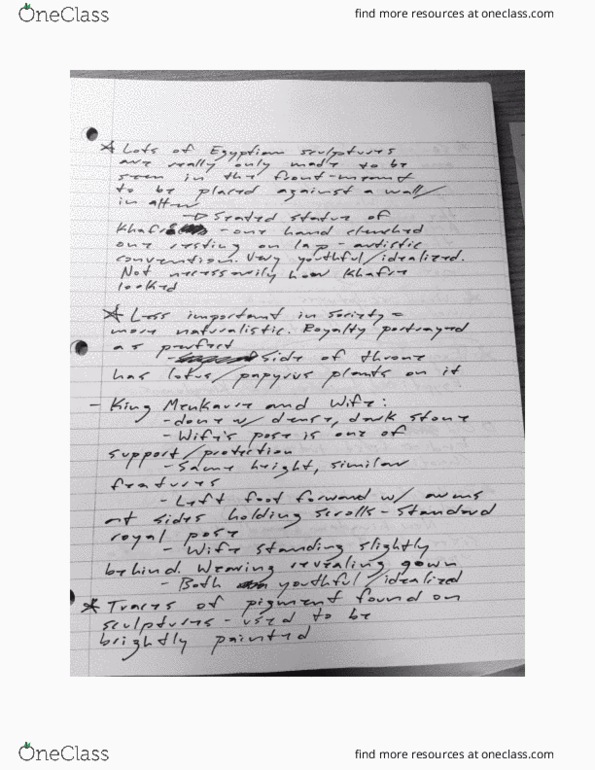 OneClass
find more resources at oneclass.com
☆ Lots of Egyptian sculptures
are really only made to be
seen in the front-meant
to be placed against a wall/
in
→ Seated statue of
Khafre - one hand clenched
one resting on lap - artistic
convention. Very youthful/idealized.
Not necessarily how Khafre
looked
☆ Less important in society =
more naturalistic. Royalty portrayed
as perfect
- side of throne
has lotus/papyrus plants on it
- King Menkaure and Wife:
- done w/ dense, dark stone
- Wife's pose is one of
support/protection
- Same height, similar
features
- Left foot forward w/ arms
at sides holding scrolls - Standard
royal pose
- Wife standing slightly
behind. Wearing revealing gown
- Both youthful/idealized
* Traces of pigment found on
sculptures - used to be
brightly painted
OneClass
find more resources at oneclass.com